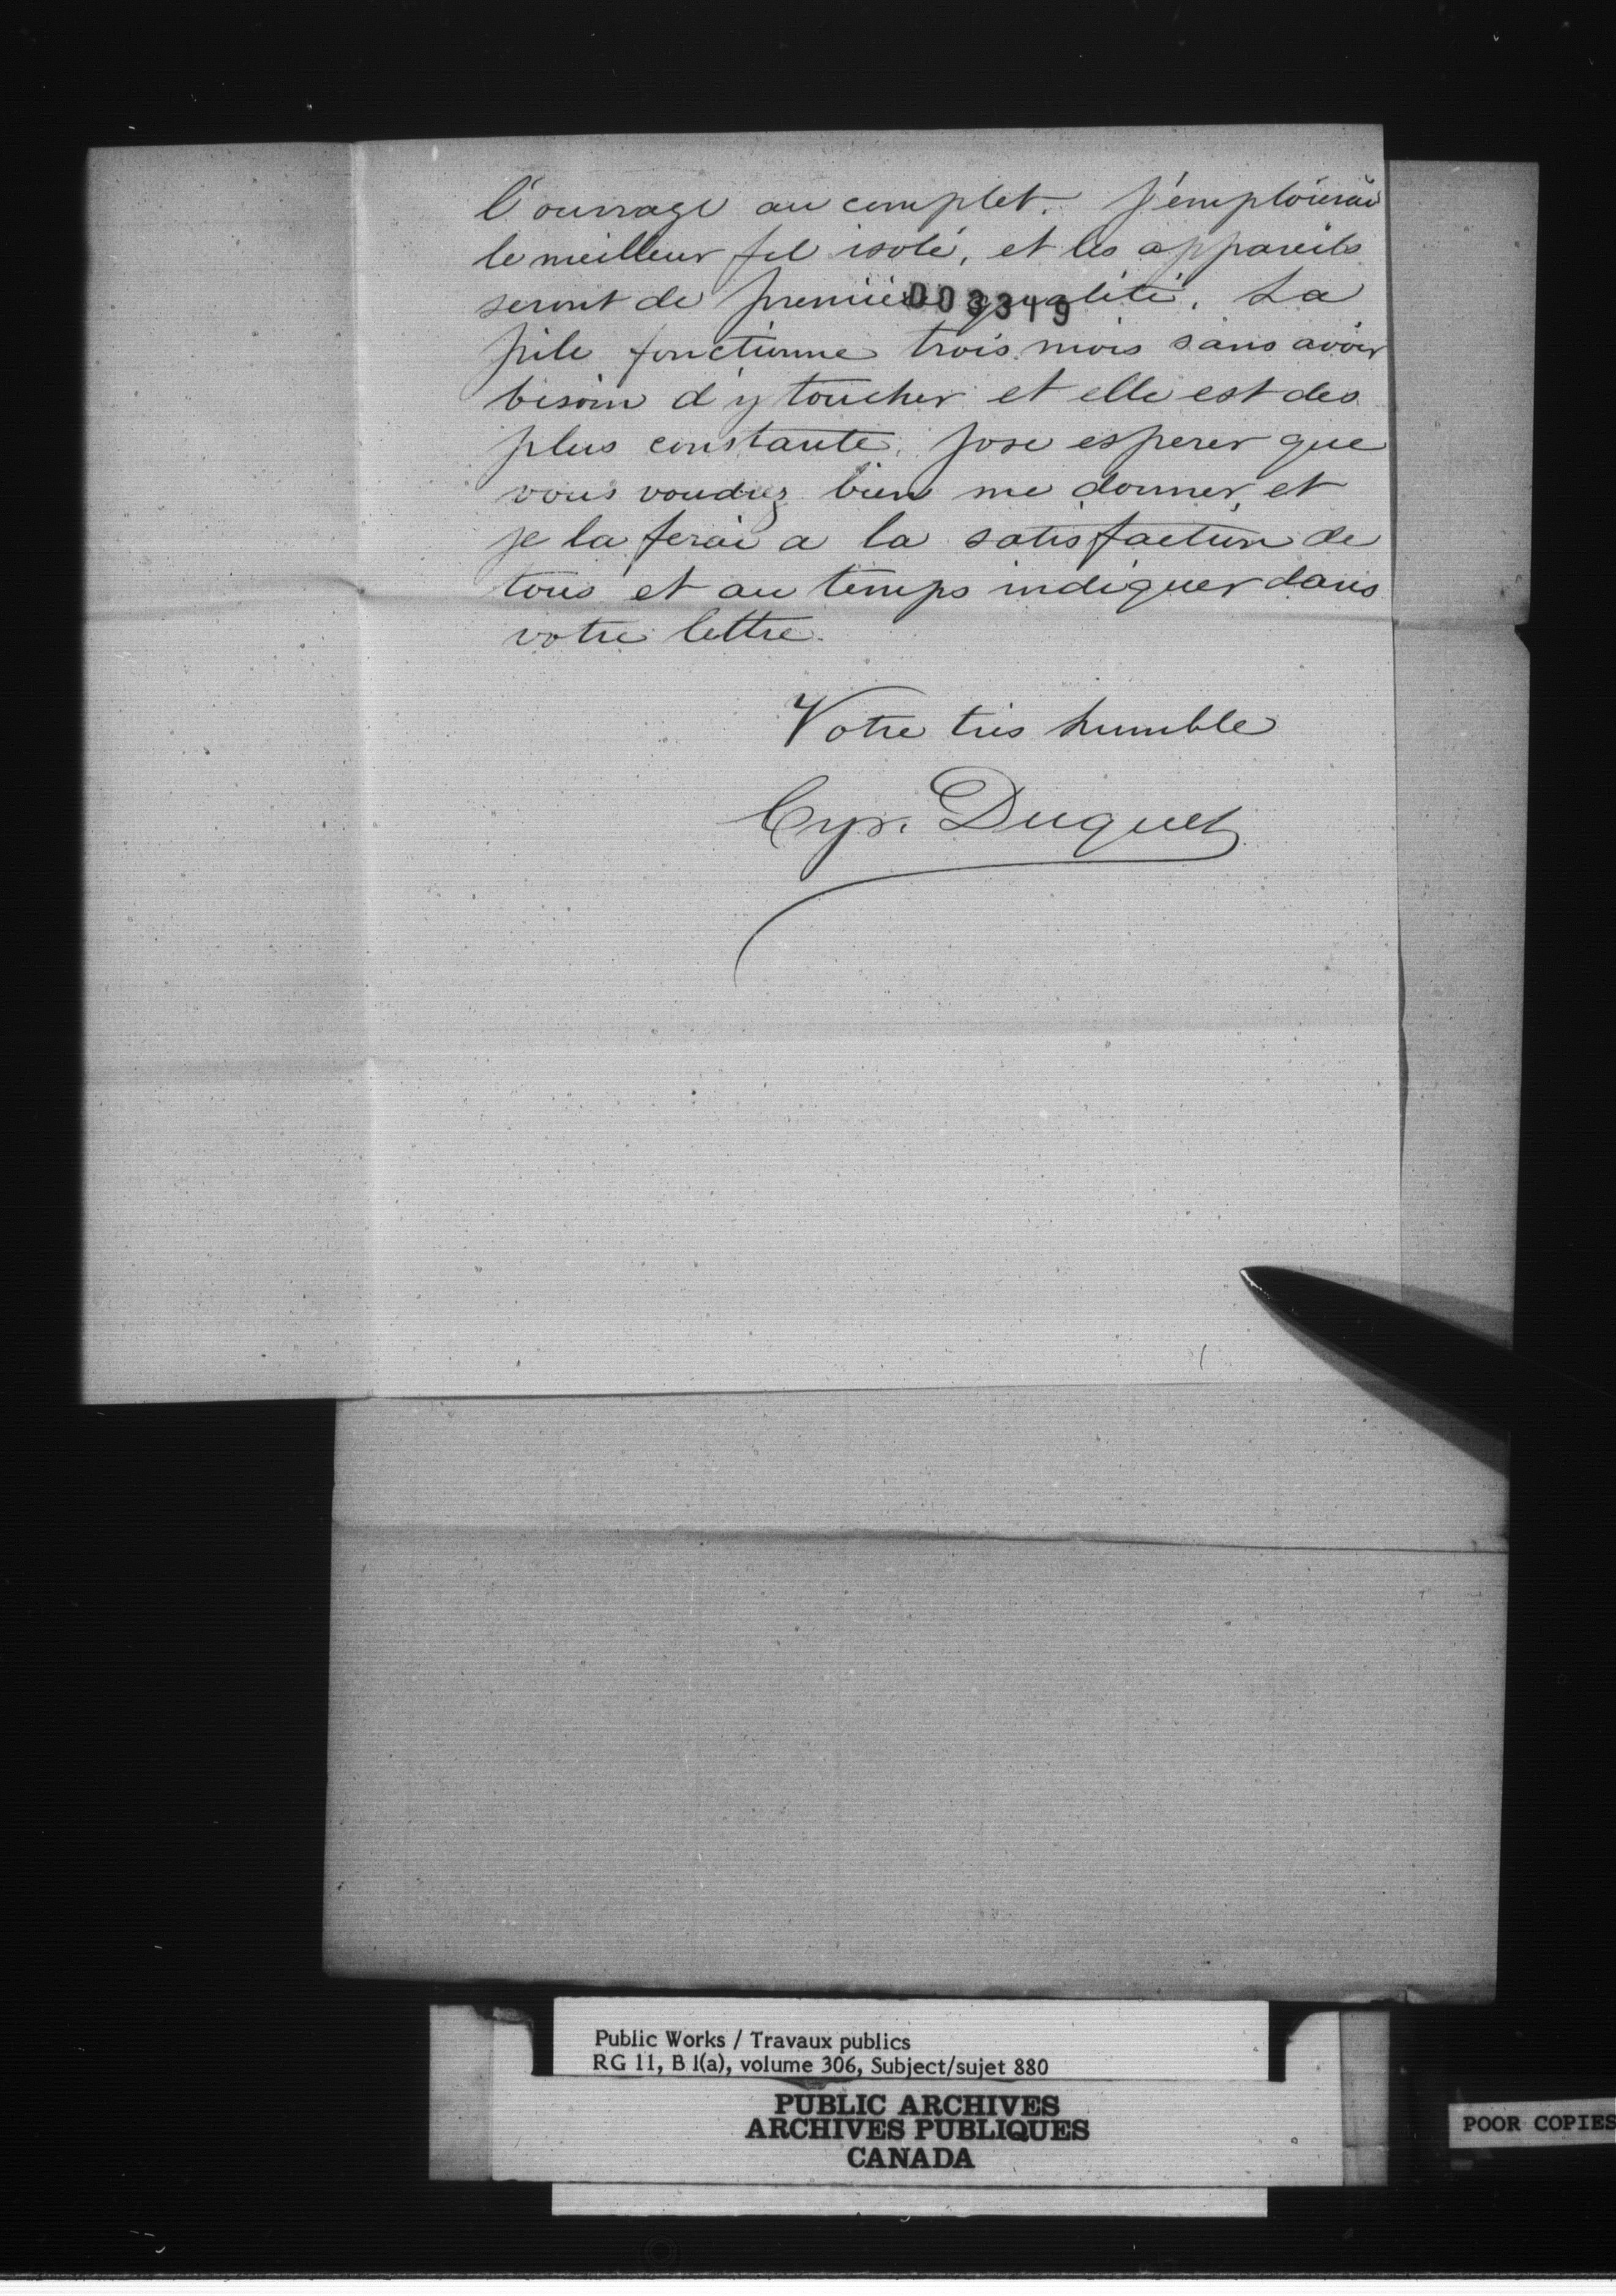 l'ouvrage au complet. J'emploierai
le meilleur fil isolé, et les appareils
seront de première qualité. La
003319
pile fonctionne trois mois sans avoir
besoin d'y toucher et elle est des
plus constante, jose esperer que
vous voudrez bien me donner, et
je la ferai a la satisfaction de
tous et au temps indiquer dans
votre lettre.
Votre très humble
Cyr. Duquet
Public Works / Travaux publics
RG 11, B 1(a), volume 306, Subject/sujet 880
PUBLIC ARCHIVES
ARCHIVES PUBLIQUES
CANADA
POOR COPIES